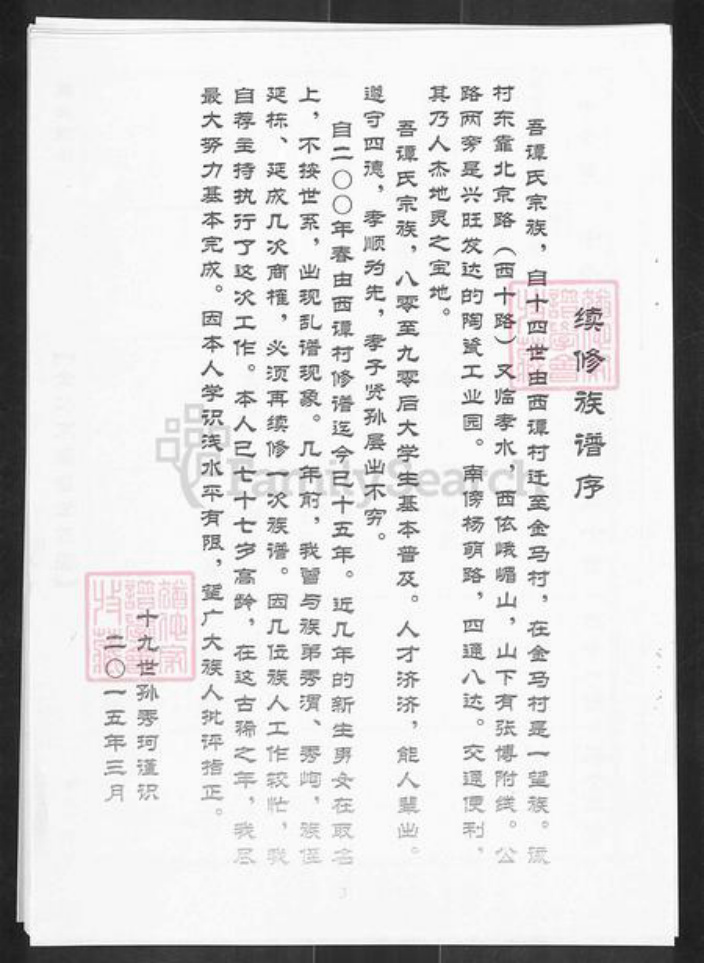 续修族谱序
吾谭氏宗族，自十四世由西谭村迁至金马村，在金马村是一望族。该
村东靠北京路（西十路）又临孝水，西依峨嵋山，山下有张博附线。公
路两旁是兴旺发达的陶瓷工业园。南傍杨萌路，四通八达。交通便利，
其乃人杰地灵之宝地。
吾谭氏宗族，八零至九零后大学生基本普及。人才济济，能人辈出。
遵守四德，孝顺为先，孝子贤孙层出不穷。
自二〇〇年春由西谭村修谱迄今已十五年。近几年的新生男女在取名
上，不按世系，出现乱谱现象。几年前，我曾与族弟秀渭、秀峋，族侄
延栋、延成几次商榷，必须再续修一次族谱。因几位族人工作较忙，我
自荐主持执行了这次工作。本人已七十七岁高龄，在这古稀之年，我尽
最大努力基本完成。因本人学识浅水平有限，望广大族人批评指正。
十九世孙秀珂谨识
二〇一五年三月
3
FamilySearch